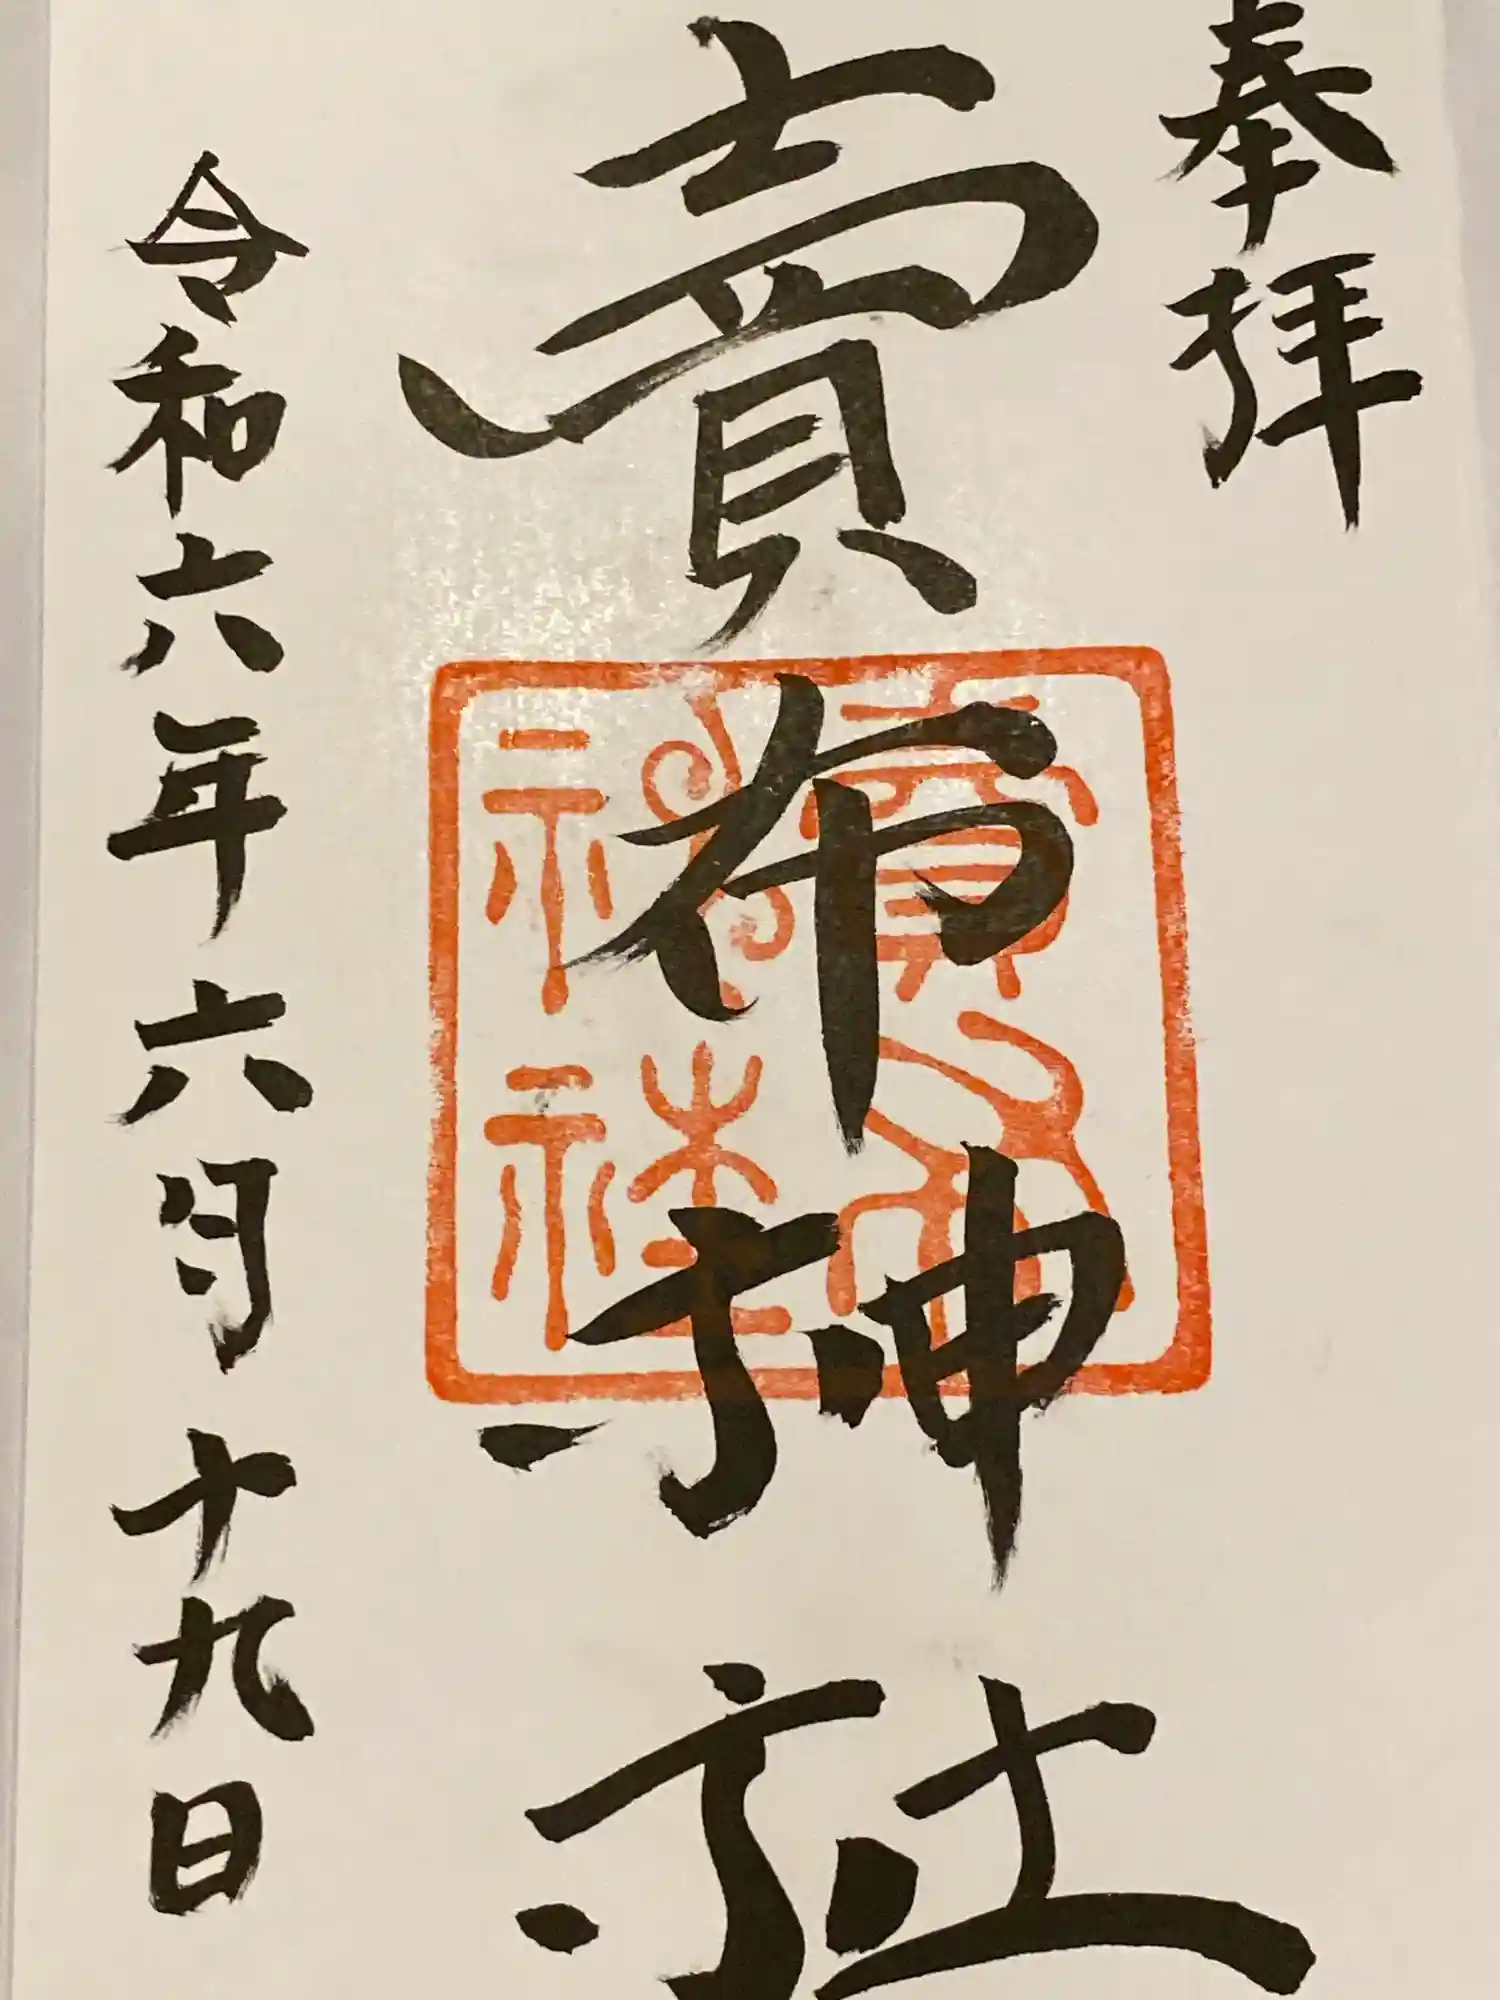 奉拝
賣布神社
賣布
神社
令和六年六月十九日